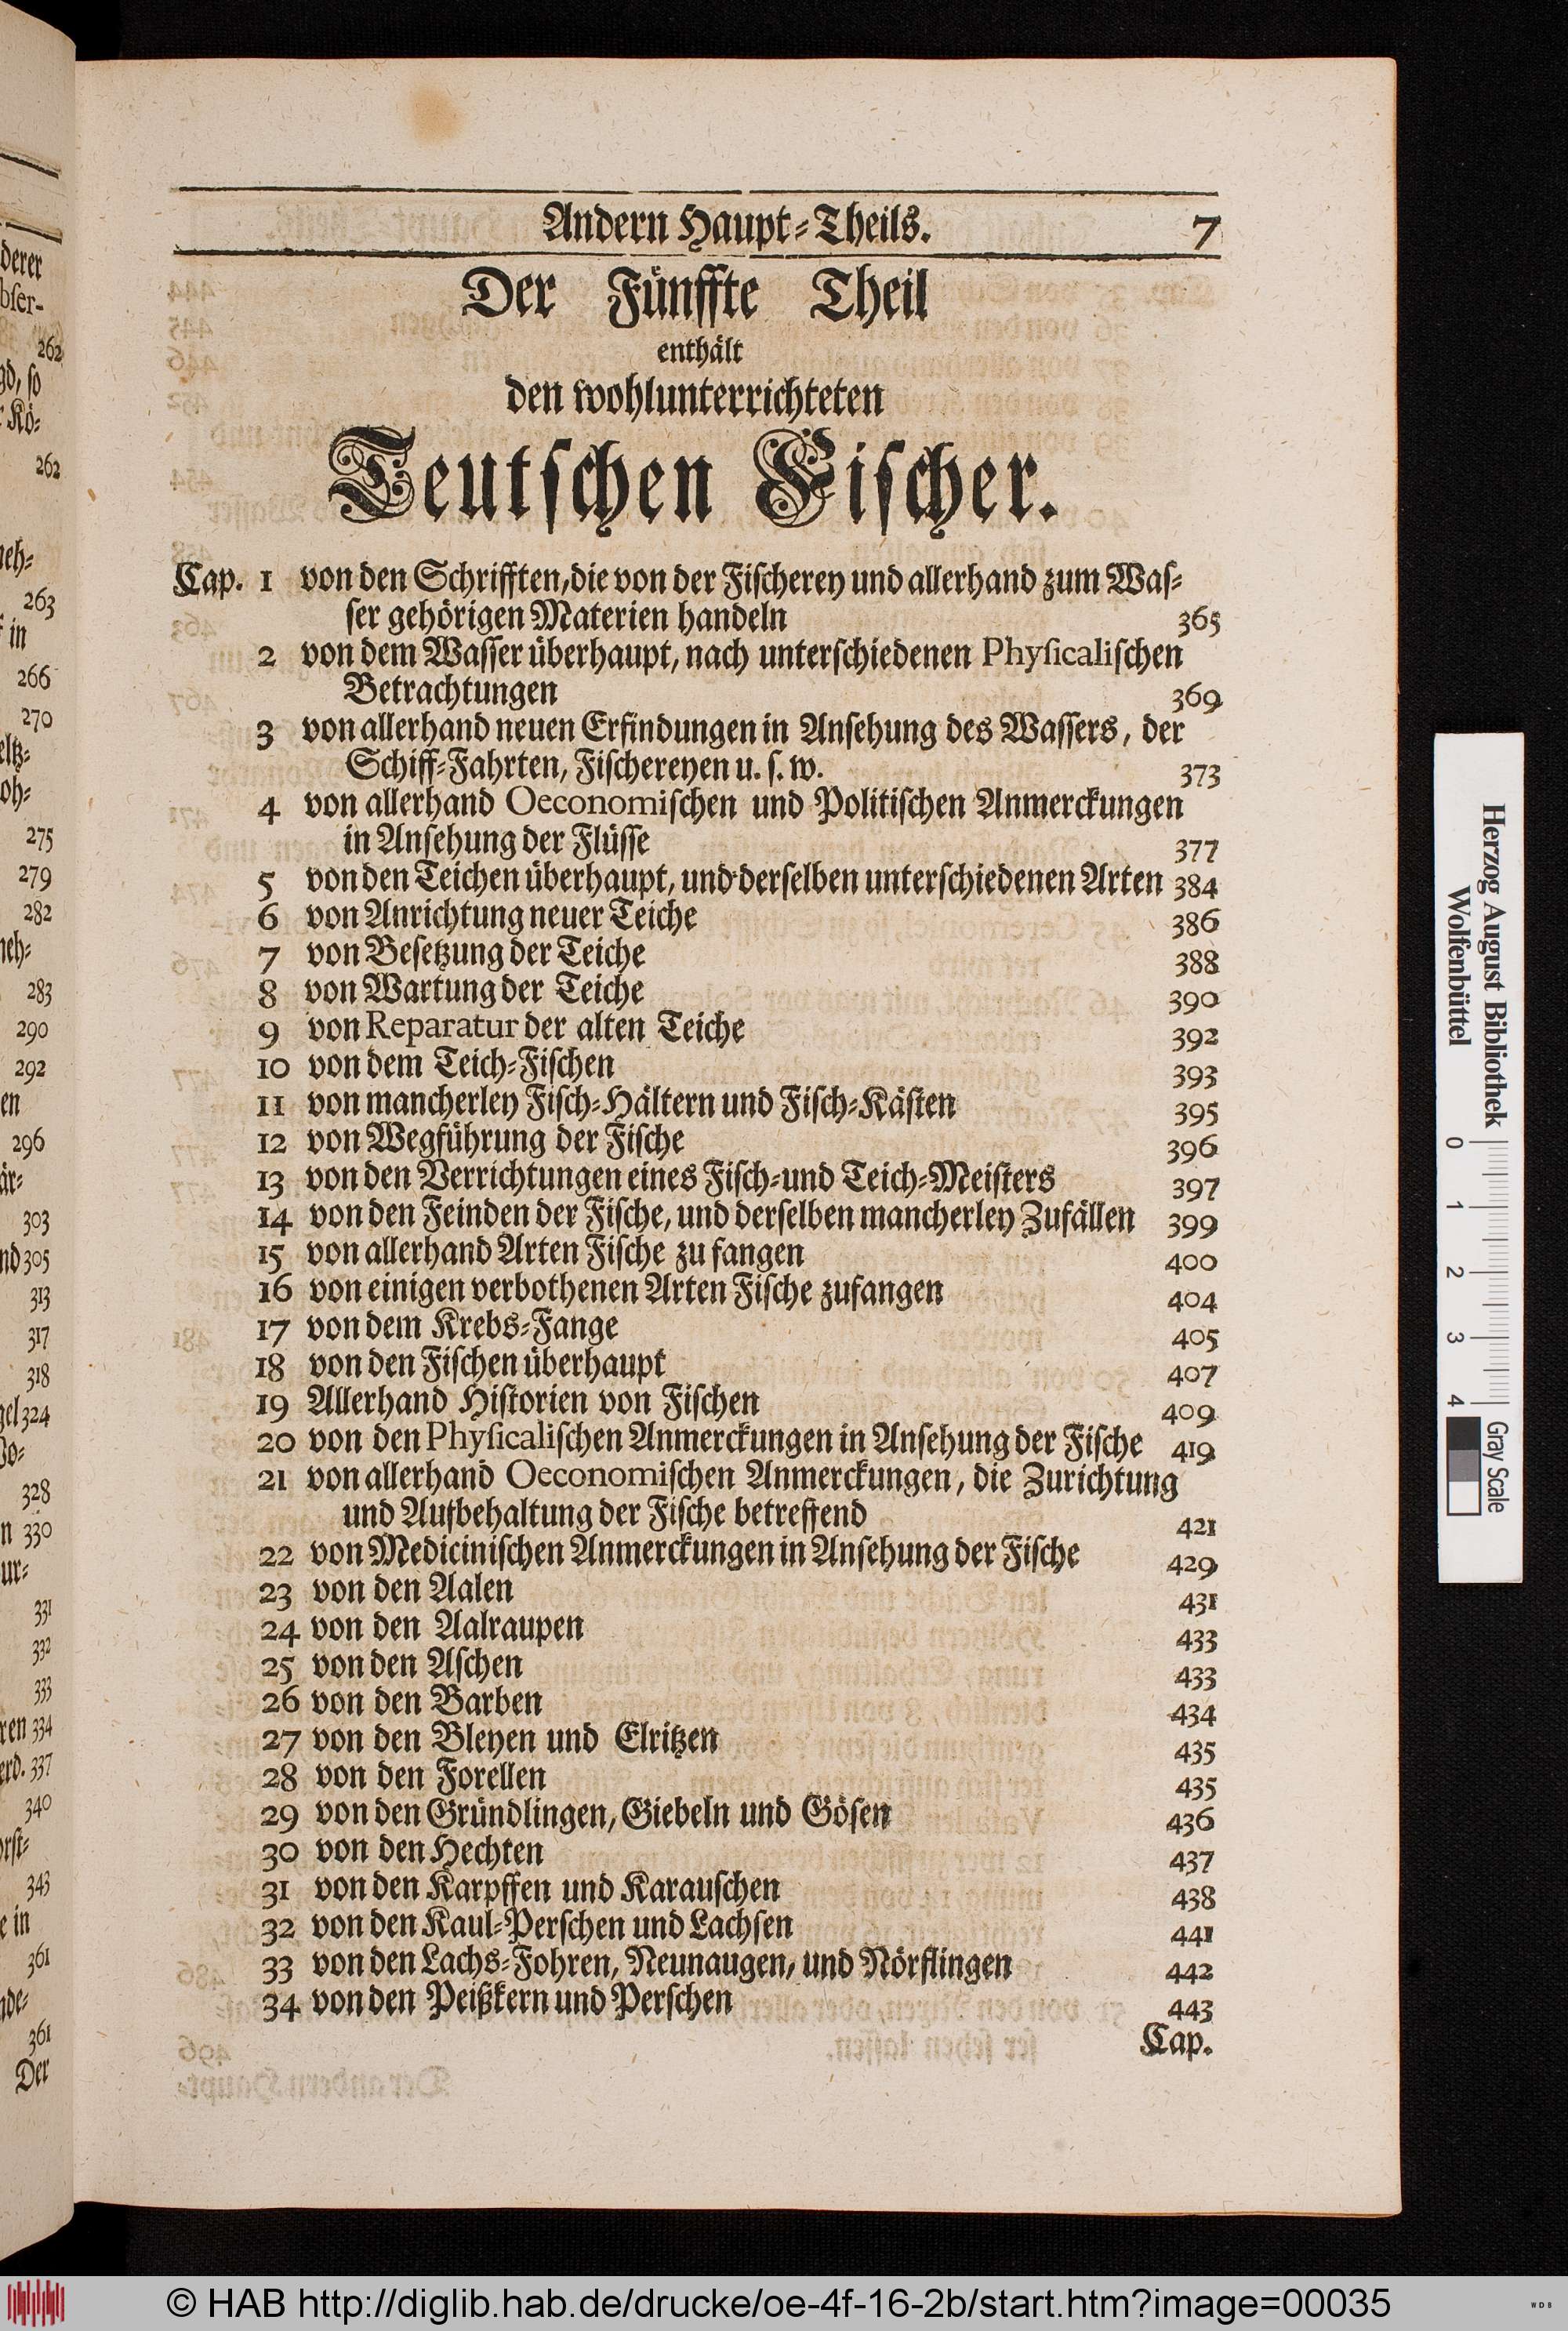 Andern Haupt-Theils. 7
Der Fünffte Theil
enthält
den wohlunterrichteten
Teutschen Fischer.
Cap. 1 von den Schrifften, die von der Fischerey und allerhand zum Was-
ser gehörigen Materien handeln 365
2 von dem Wasser überhaupt, nach unterschiedenen Physicalischen
Betrachtungen 369
3 von allerhand neuen Erfindungen in Ansehung des Wassers, der
Schiff-Fahrten, Fischereyen u. s. w. 373
4 von allerhand Oeconomischen und Politischen Anmerckungen
in Ansehung der Flüsse 377
5 von den Teichen überhaupt, und derselben unterschiedenen Arten 384
6 von Anrichtung neuer Teiche 386
7 von Besetzung der Teiche 388
8 von Wartung der Teiche 390
9 von Reparatur der alten Teiche 392
10 von dem Teich-Fischen 393
11 von mancherley Fisch-Hältern und Fisch-Kästen 395
12 von Wegführung der Fische 396
13 von den Verrichtungen eines Fisch-und Teich-Meisters 397
14 von den Feinden der Fische, und derselben mancherley Zufällen 399
15 von allerhand Arten Fische zu fangen 400
16 von einigen verbothenen Arten Fische zufangen 404
17 von dem Krebs-Fange 405
18 von den Fischen überhaupt 407
19 Allerhand Historien von Fischen 409
20 von den Physicalischen Anmerckungen in Ansehung der Fische 419
21 von allerhand Oeconomischen Anmerckungen, die Zurichtung
und Aufbehaltung der Fische betreffend 421
22 von Medicinischen Anmerckungen in Ansehung der Fische 429
23 von den Aalen 431
24 von den Aalraupen 433
25 von den Aschen 433
26 von den Barben 434
27 von den Bleyen und Elritzen 435
28 von den Forellen 435
29 von den Gründlingen, Giebeln und Gösen 436
30 von den Hechten 437
31 von den Karpffen und Karauschen 438
32 von den Kaul-Perschen und Lachsen 441
33 von den Lachs-Fohren, Neunaugen, und Nörflingen 442
34 von den Peißkern und Perschen 443
Cap.
Herzog August Bibliothek
Wolfenbüttel
0 1 2 3 4
Gray Scale
© HAB http://diglib.hab.de/drucke/oe-4f-16-2b/start.htm?image=00035
WDB